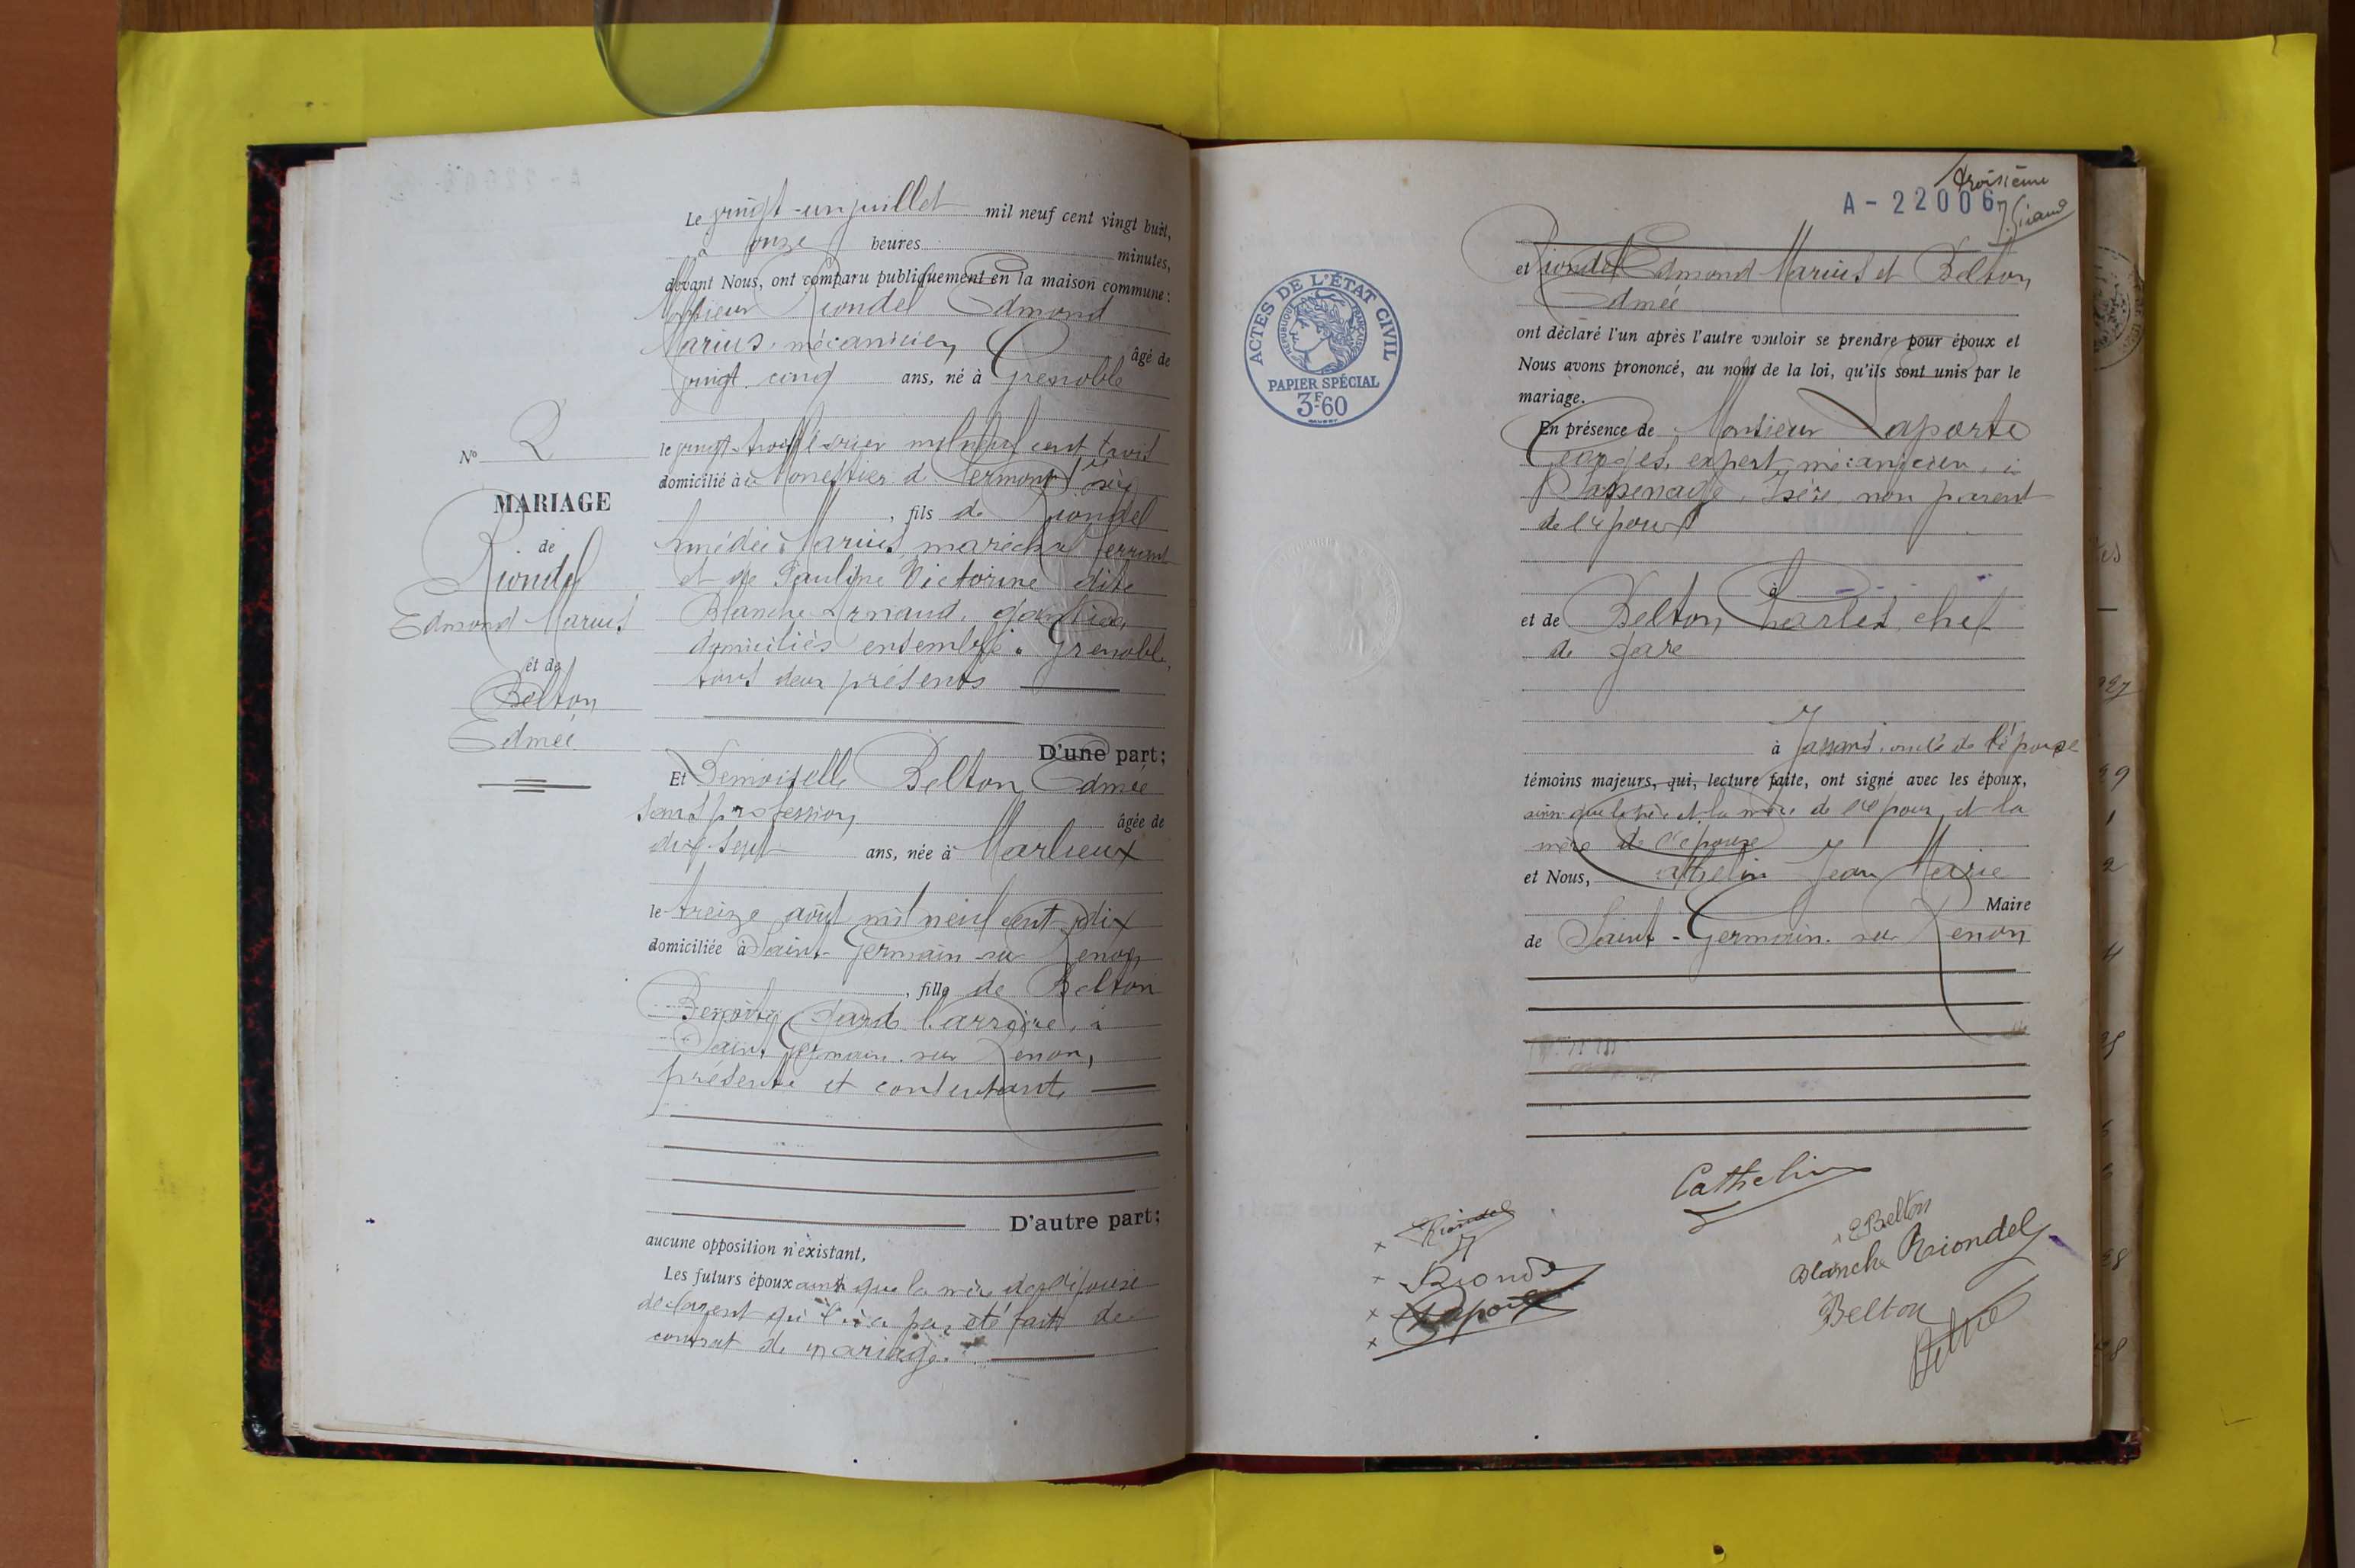 Le vingt-un juillet mil neuf cent vingt huit,
à onze heures minutes,
devant Nous, ont comparu publiquement en la maison commune:
Monsieur Riondel Edmond
Marius, mécanicien, âgé de
vingt-cinq ans, né à Grenoble
le vingt-trois février mil neuf cent trois
domicilié à Monestier de Clermont, Isère
, fils de Riondel
Amédée Marius, maréchal ferrant
et de Pauline Victorine dite
Blanche Arnaud, gantière,
domiciliés ensemble à Grenoble,
tous deux présents
D'une part;
Et Demoiselle Belton Edmée
sans profession, âgée de
dix-sept ans, née à Marlieux
le treize août mil neuf cent dix
domiciliée à Saint-Germain sur Renon
, fille de Belton
Benoîte, garde barrière, à
Saint Germain sur Renon,
présente et consentante
D'autre part;
aucune opposition n'existant,
Les futurs époux ainsi que la mère de l'épouse
déclarent qu'il n'a pas été fait de
contrat de mariage.
N° 2
MARIAGE
de
Riondel
Edmond Marius
et de
Belton
Edmée
A-22006
troisième
et Riondel Edmond Marius et Belton
Edmée
ont déclaré l'un après l'autre vouloir se prendre pour époux et
Nous avons prononcé, au nom de la loi, qu'ils sont unis par le
mariage.
En présence de Monsieur Laporte
Georges, expert mécanicien, à
Sassenage, Isère, non parent
de l'époux
à
et de Belton Charles, chef
de gare
à Jassans, oncle de l'épouse
témoins majeurs, qui, lecture faite, ont signé avec les époux,
ainsi que le père et la mère de l'époux, et la
mère de l'épouse
et Nous, Cathelin Jean Marie
Maire
de Saint-Germain sur Renon
ACTES DE L'ÉTAT CIVIL
RÉPUBLIQUE FRANÇAISE
PAPIER SPÉCIAL
3F60
Cathelin
Riondel
E Belton
Blanche Riondel
Belton
Laporte